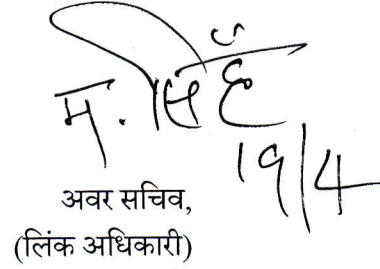 म. सिंह
19/4
अवर सचिव,
(लिंक अधिकारी)